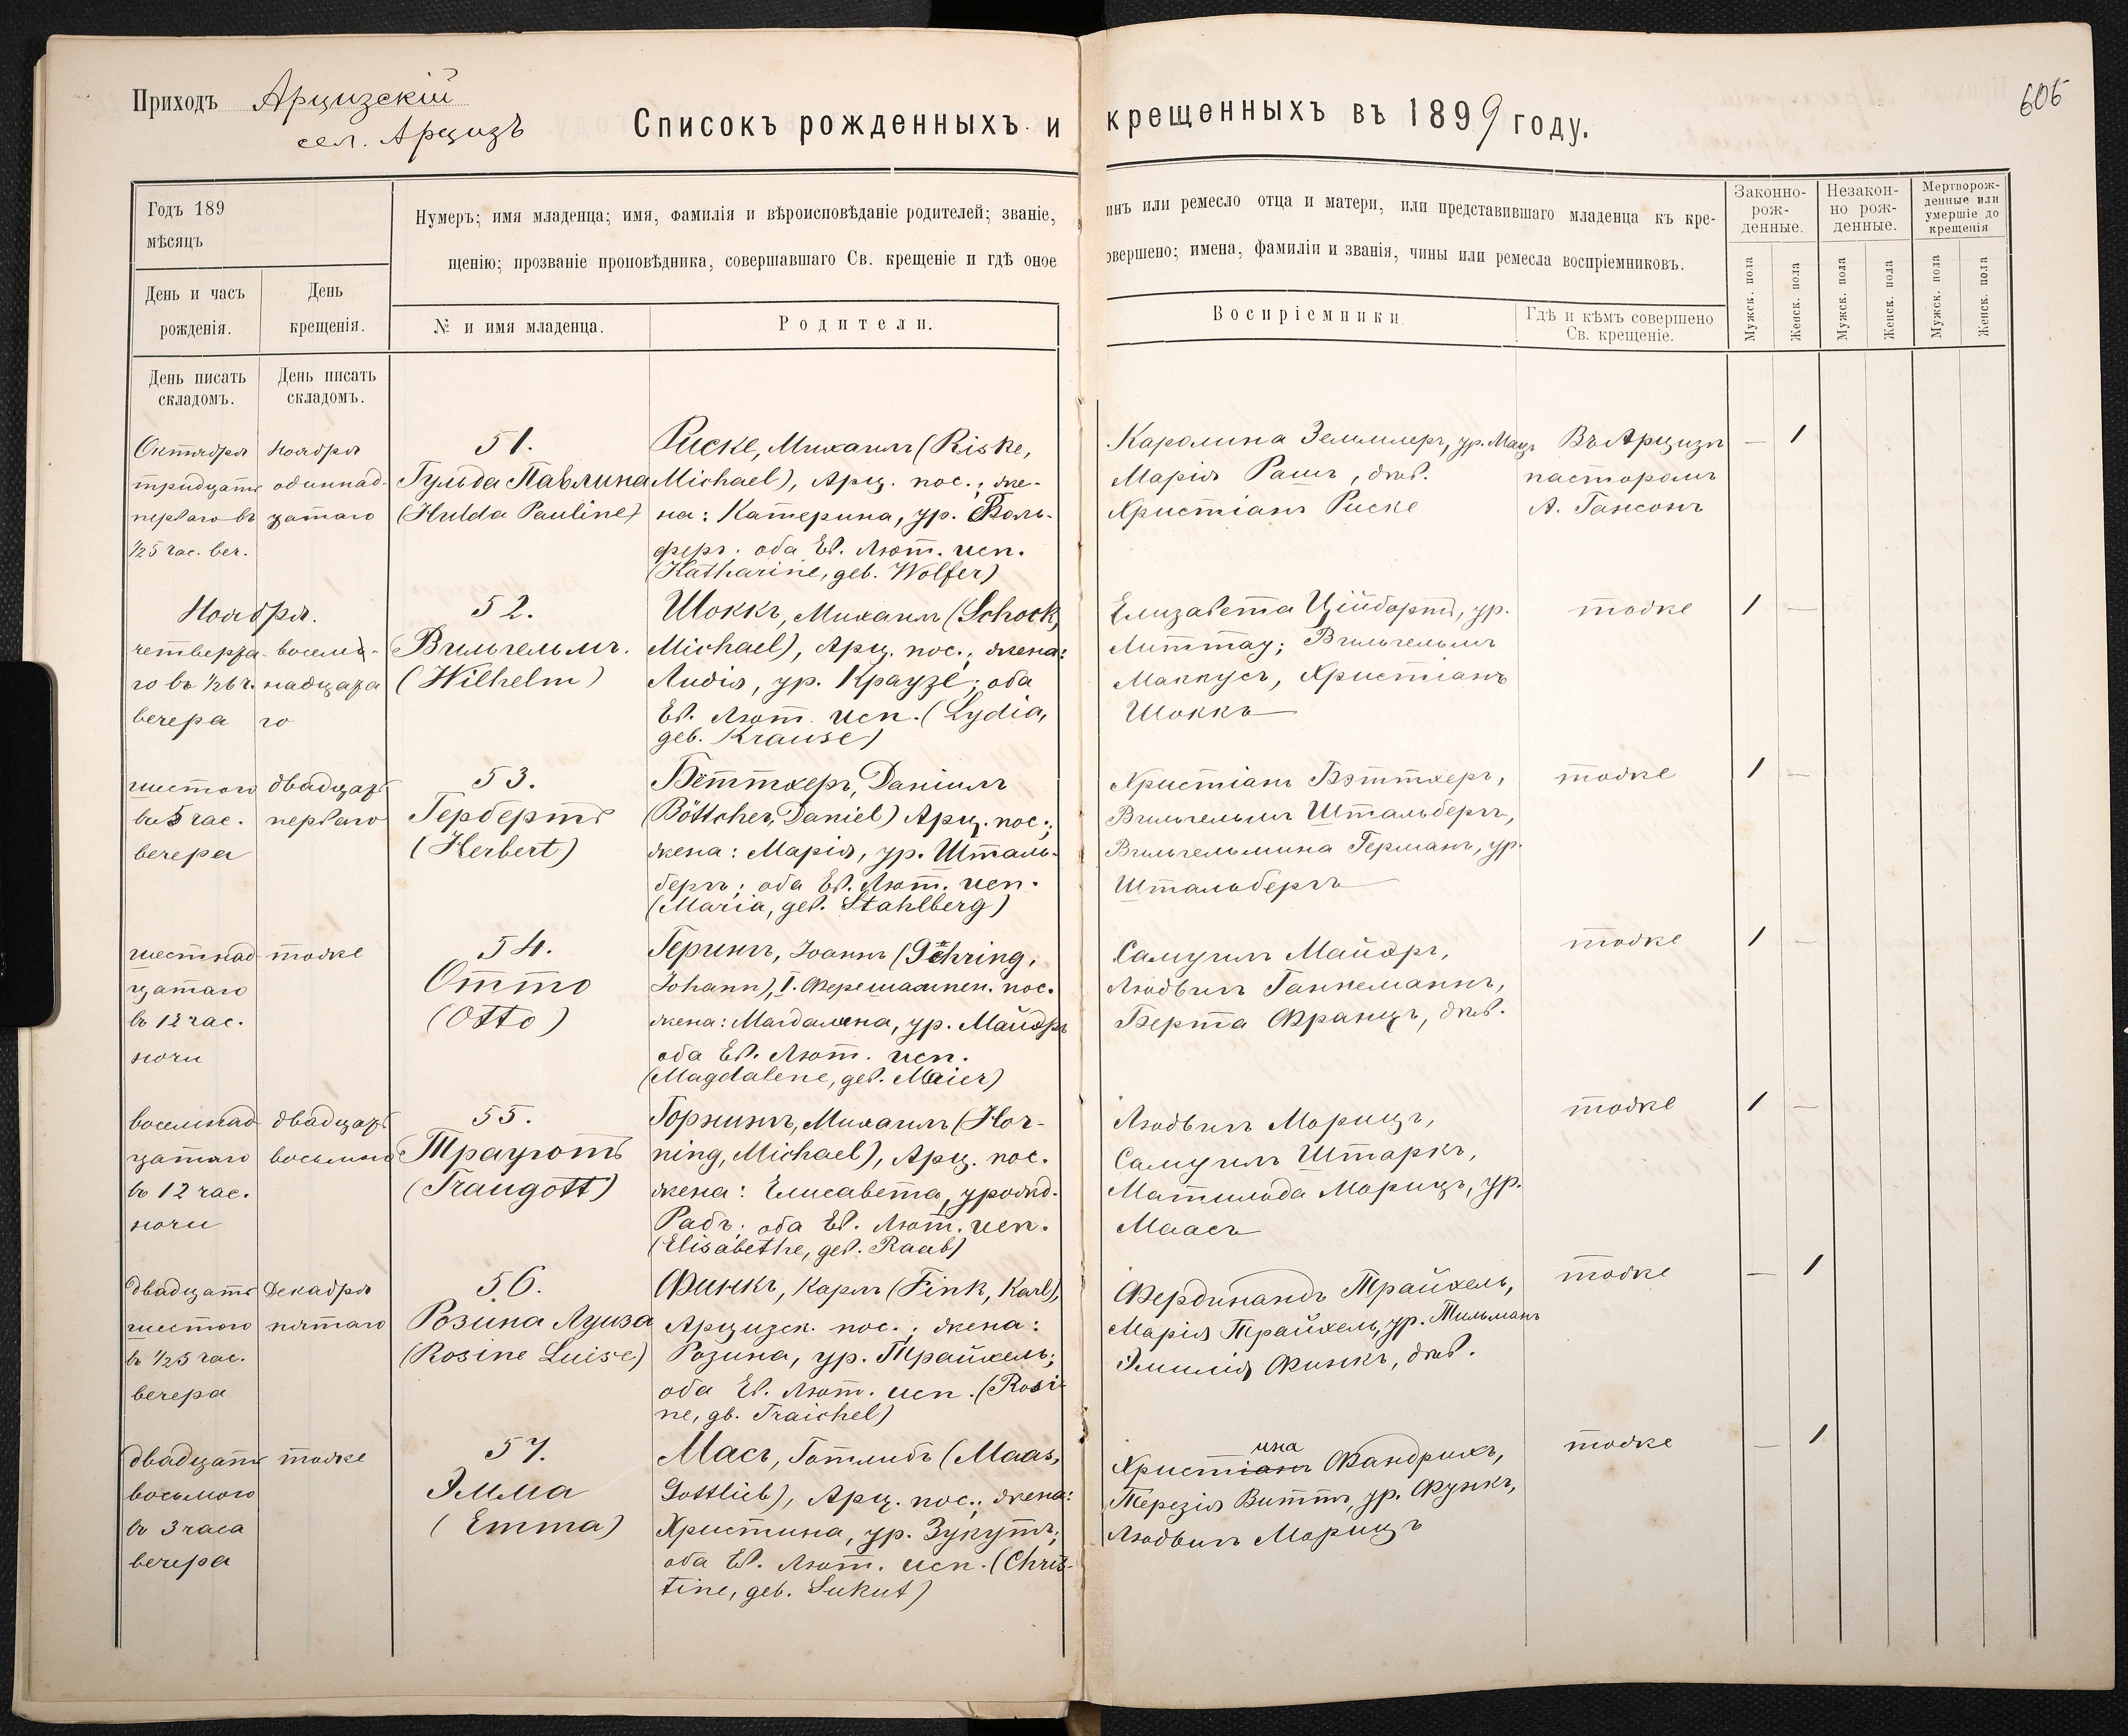 Приходъ Арцизскій
сел. Арцизъ
605
Списокъ рожденныхъ и крещенныхъ въ 1899 году.
Годъ 189
мѣсяцъ
Нумеръ; имя младенца; имя, фамилія и вѣроисповѣданіе родителей; званіе,
щенію; прозваніе проповѣдника, совершавшаго Св. крещеніе и гдѣ оное
инъ или ремесло отца и матери, или представившаго младенца къ кре-
овершено; имена, фамиліи и званія, чины или ремесла воспріемниковъ.
Законно-
рож-
денные.
Незакон-
но рож-
денные.
Мертворож-
денные или
умершіе до
крещенія
День и часъ
рожденія.
День
крещенія.
№ и имя младенца.
Родители.
Воспріемники
Гдѣ и кѣмъ совершено
Св. крещеніе.
Мужск. пола
Женск. пола
Мужск. пола
Женск. пола
Мужск. пола
Женск. пола
День писать
складомъ.
День писать
складомъ.
Октября
тридцать
перваго въ
½5 час. веч.
Ноября
одиннад-
цатаго
51.
Гульда Павлина
(Hulda Pauline)
Риске, Михаилъ (Riske,
Michael), Арц. пос.; же-
на: Катерина, ур. Воль-
феръ; оба Ев. Лют. исп.
(Katharine, geb. Wolfer)
Каролина Земмлеръ, ур. Мацъ
Марія Рашъ, дѣв.
Христіанъ Риске
Въ Арцизѣ
пасторомъ
А. Гансонъ
— 1
Ноября.
четверта-
го въ ½6 ч.
вечера
восем-
надцата
го
52.
Вильгельмъ.
(Wilhelm)
Шоккъ, Михаилъ (Schock,
Michael), Арц. пос.; жена:
Лидія, ур. Краузе; оба
Ев. Лют. исп. (Lydia,
geb. Krause)
Елизавета Ційбартъ, ур.
Литтау; Вильгельмъ
Маппусъ, Христіанъ
Шоккъ
тоже
1 —
шестого
въ 5 час.
вечера
двадцать
перваго
53.
Гербертъ
(Herbert)
Бёттхеръ, Даніилъ
(Böttcher, Daniel) Арц. пос.;
жена: Марія, ур. Шталь-
бергъ; оба Ев. Лют. исп.
(Maria, geb. Stahlberg)
Христіанъ Бэттхеръ,
Вильгельмъ Штальбергъ,
Вильгельмина Германъ, ур.
Штальбергъ
тоже
1 —
шестнад-
цатаго
въ 12 час.
ночи
тоже
54.
Отто
(Otto)
Герингъ, Іоаннъ (Göhring,
Johann), I. Ферешампен. пос.
жена: Магдалена, ур. Майэръ
оба Ев. Лют. исп.
(Magdalene, geb. Maier)
Самуилъ Майэръ,
Людвигъ Ганнеманнъ,
Берта Францъ, дѣв.
тоже
1 —
восемнад-
цатаго
въ 12 час.
ночи
двадцать
восьмого
55.
Трауготъ
(Traugott)
Горнингъ, Михаилъ (Hor-
ning, Michael), Арц. пос.
жена: Елисавета, урожд.
Рабъ; оба Ев. Лют. исп.
(Elisabethe, geb. Raab)
Людвигъ Морицъ,
Самуилъ Штаркъ,
Матильда Морицъ, ур.
Маасъ
тоже
1 —
двадцать
шестого
въ ½5 час.
вечера
Декабря
пятаго
56.
Розина Луиза
(Rosine Luise)
Финкъ, Карлъ (Fink, Karl),
Арцизск. пос.; жена:
Розина, ур. Трайхель;
оба Ев. Лют. исп. (Rosi-
ne, gb. Traichel)
Фердинандъ Трайхель,
Марія Трайхель, ур. Тильманъ
Эмилія Финкъ, дѣв.
тоже
— 1
двадцать
восьмого
въ 3 часа
вечера
тоже
57.
Эмма
(Emma)
Масъ, Готлибъ (Maas,
Gottlieb), Арц. пос.; жена:
Христина, ур. Зукутъ;
оба Ев. Лют. исп. (Chris-
tine, geb. Sukut)
ина
Христіанъ Фандрихъ,
Терезія Виттъ, ур. Функъ,
Людвигъ Морицъ
тоже
— 1